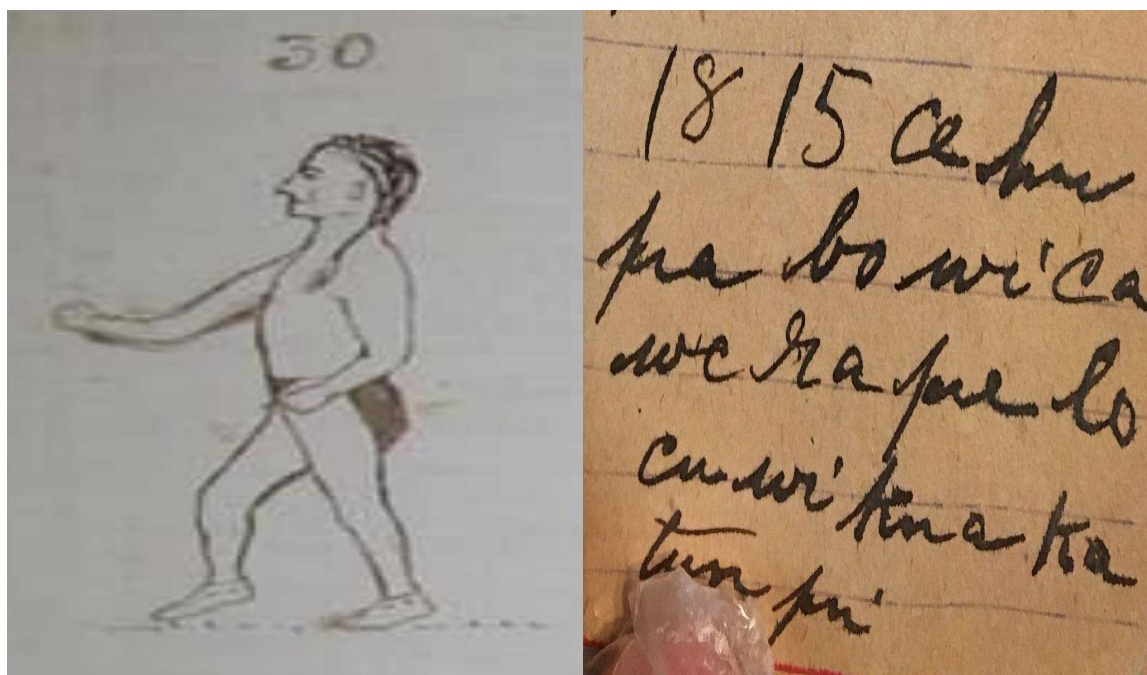 30
1815 ce hu
pa bo wi ca
we ra pe lo
cu wi kna ka
tun pi